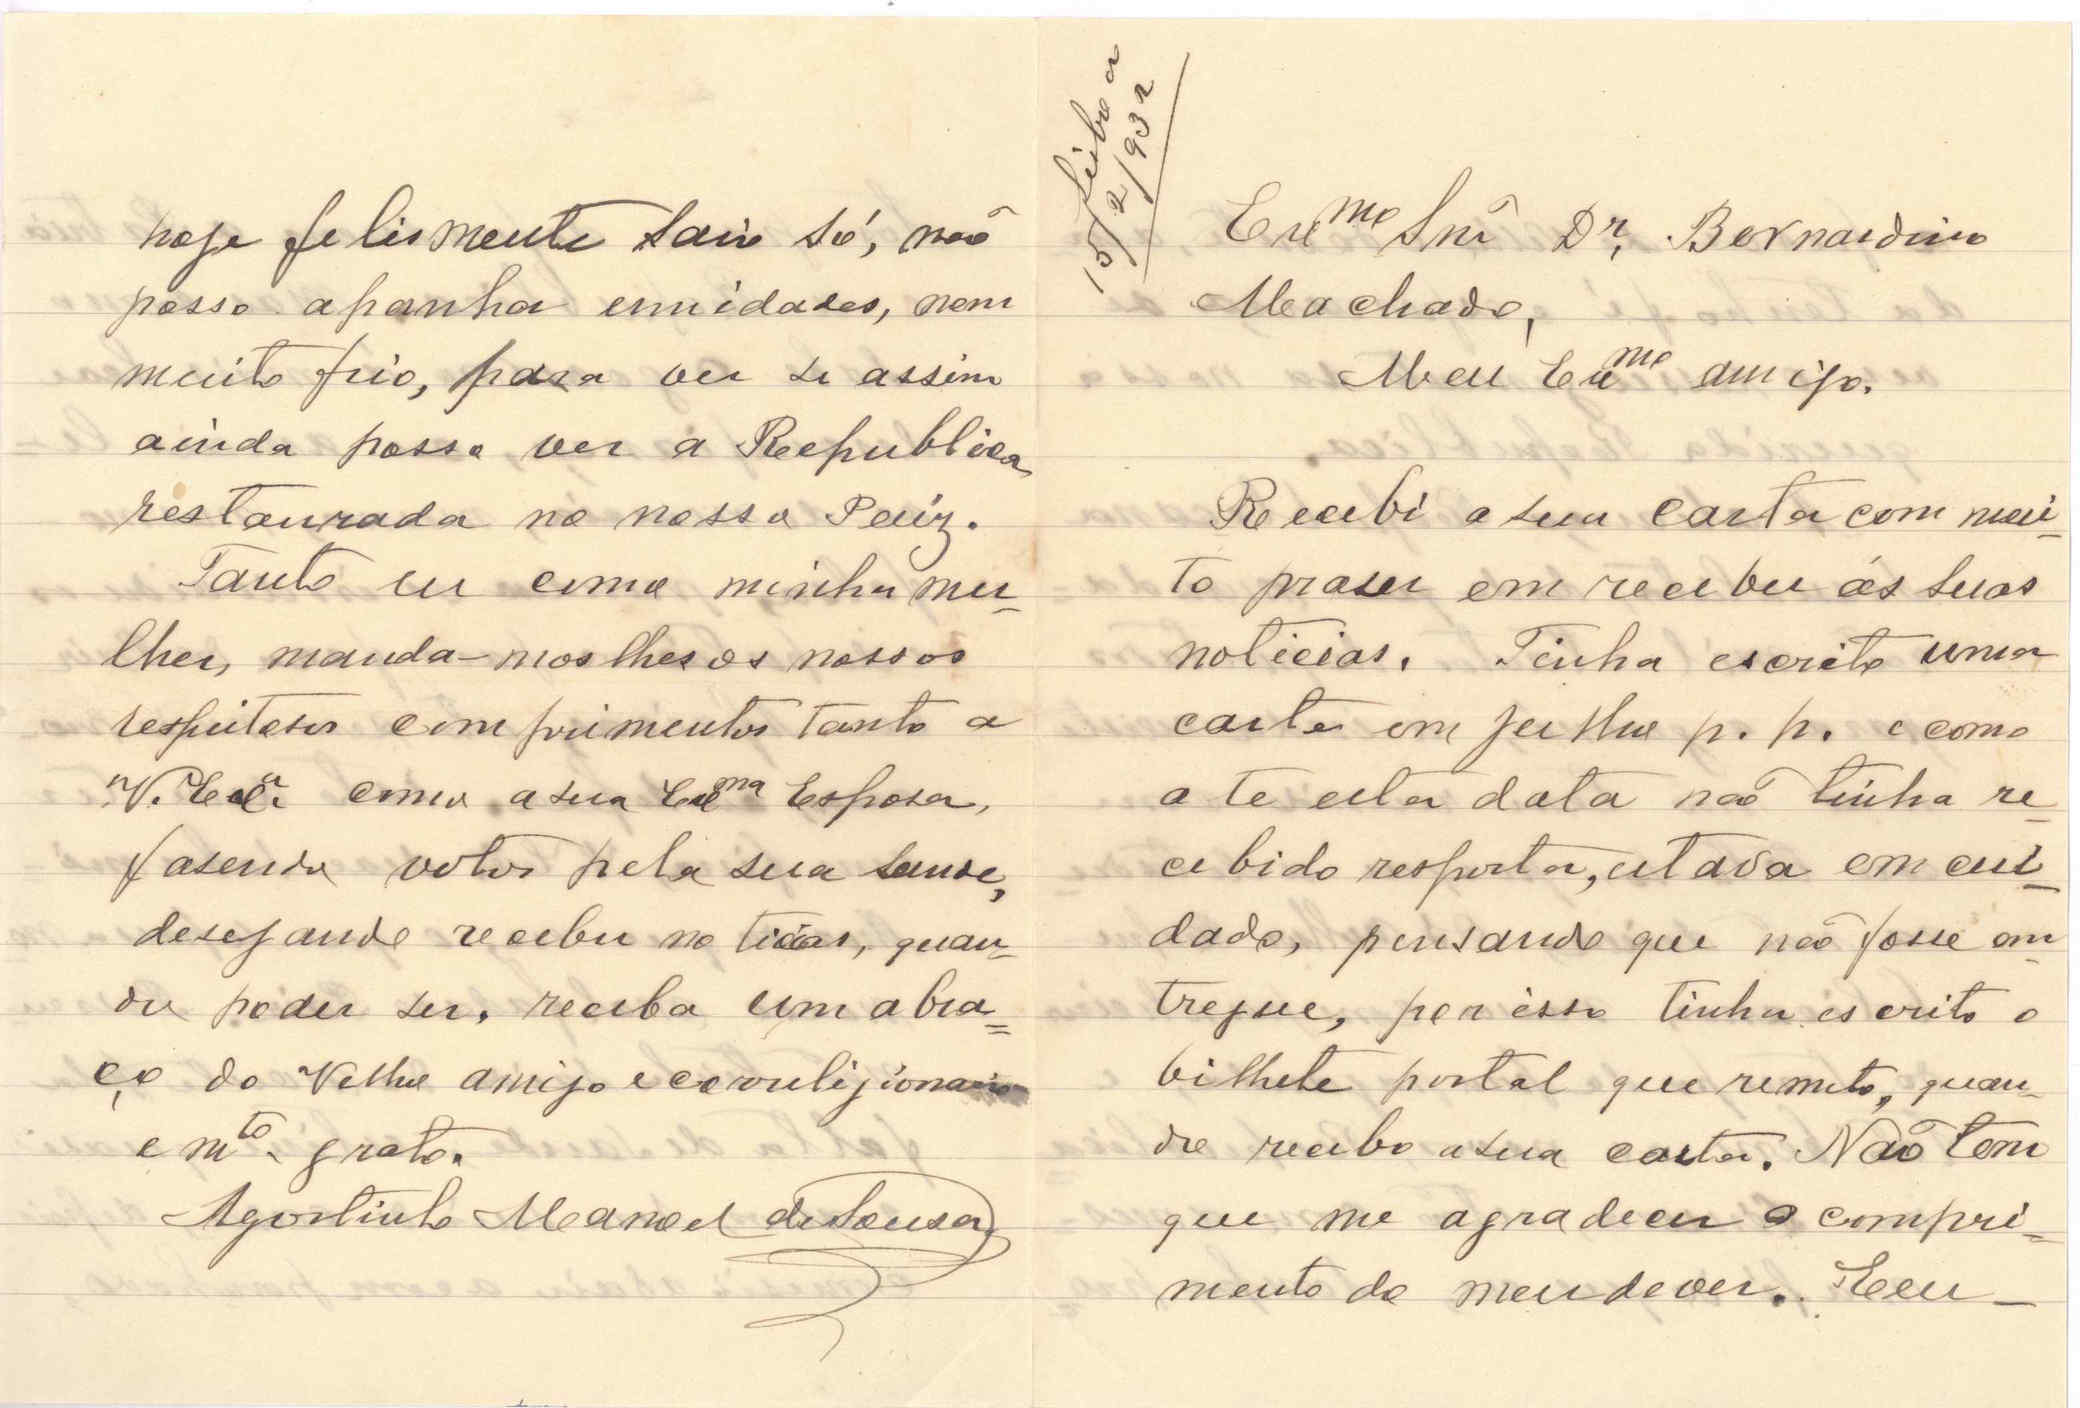 Lisboa
15/2/932
Exmo Snr Dr. Bernardino
Machado,
Meu Exmo amigo.
Recebi a sua carta com mui-
to praser em receber ás suas
noticias. Tinha escrito uma
carta em Julho p. p. e como
a te esta data não tinha re-
cebido resposta, estava em cui-
dado, pensando que não fosse en-
tregue, por isso tinha escrito o
bilhete postal que remeto, quan-
do recebo a sua carta. Não tem
que me agradecer o compri-
mento do meu dever. Eeu-
hoje felismente saio só, não
posso apanha umidades, nem
muito frio, para ver se assim
ainda posso ver a Republica
restaurada no nosso Paiz.
Tanto eu como minha mu-
lher, manda-mos lhes os nossos
respeitosos comprimentos tanto a
V. Exª como a sua Exma Esposa,
fasendo votos pela sua saude,
desejando receber noticias, quan-
do poder ser, receba um abra-
ço do Velho amigo e correligionario
e mto grato.
Agostinho Manoel de Sousa